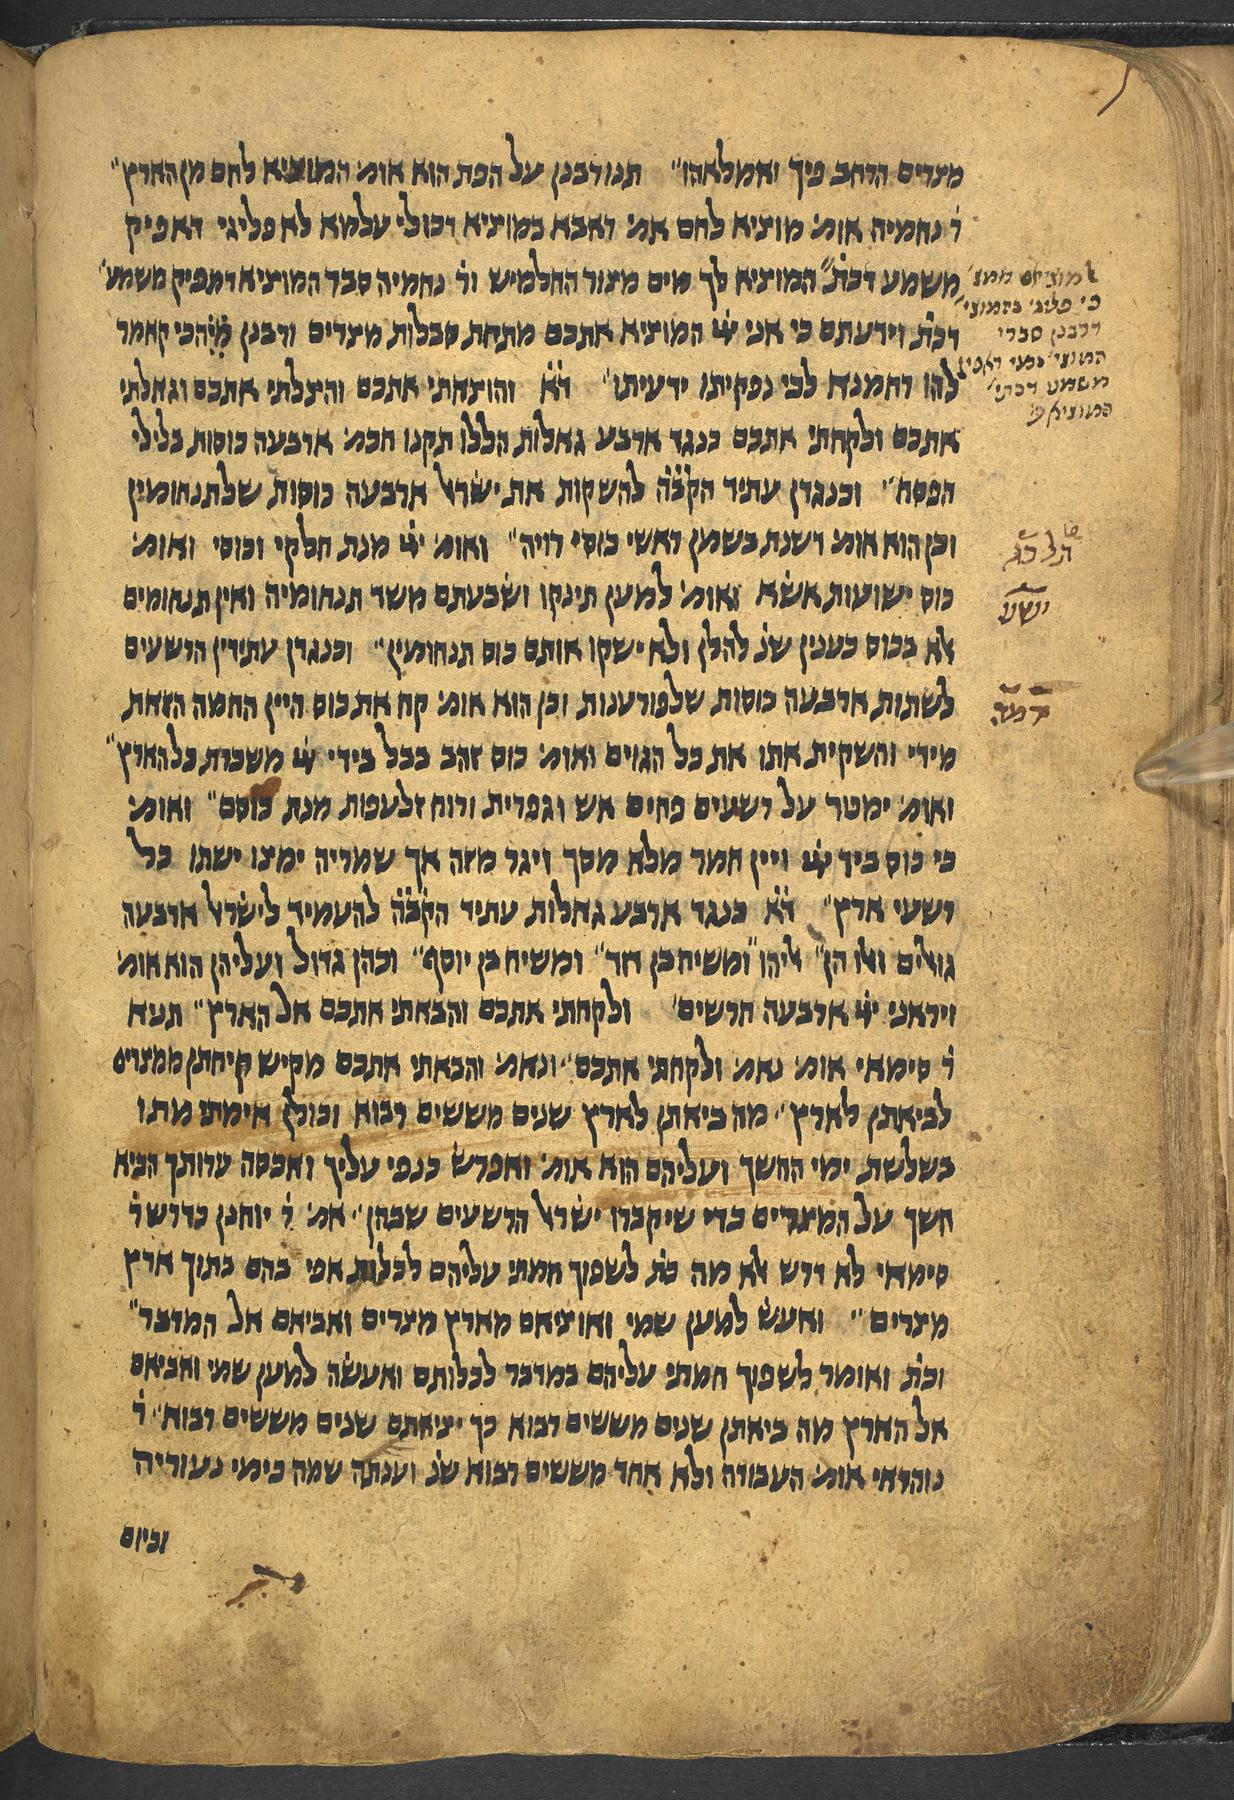 מצרים הרחב פיך ואמלאהו״ תנו רבנן על הפת הוא אומ׳ המוציא לחם מן הארץ״
ר׳ נחמיה אומ׳ מוציא לחם אמ׳ ראבא במוציא דכולי עלמא לא פליגי דאפיק
משמע דכת׳״ המוציא לך מים מצור החלמיש ור׳ נחמיה סבר המוציא דמפיק משמע׳
דכת׳ וידעתם כי אני יי׳ המוציא אתכם מתחת סבלות מצרים ורבנן ההוא הכי קאמר
להו רחמנא לכי נפקיתו ידעיתו״ ד״א והוצאתי אתכם והצלתי אתכם וגאלתי
אתכם ולקחתי אתכם כנגד ארבע גאלות הללו תקנו חכמ׳ ארבעה כוסות בלילי
הפסח״ וכנגדן עתיד הקב״ה להשקות את ישר׳ ארבעה כוסות שלתנחומין
וכן הוא אומ׳ דשנת בשמן ראשי כוסי רויה״ ואומ׳ יי׳ מנת חלקי וכוסי ואומ׳
כוס ישועות אשא ואומ׳ למען תינקו ושבעתם משד תנחומיה ואין תנחומים
אלא בכוס כענין שנ׳ להלן ולא ישקו אותם כוס תנחומין״ וכנגדן עתידין הרשעים
לשתות ארבעה כוסות שלפורענות וכן הוא אומ׳ קח את כוס היין החמה הזאת
מידי והשקית אתו את כל הגוים ואומ׳ כוס זהב בבל בידי יי׳ משכרת כל הארץ״
ואומ׳ ימטר על רשעים פחים אש וגפרית ורוח זלעפות מנת כוסם״ ואומ׳
כי כוס ביד יי׳ ויין חמר מלא מסך ויגר מזה אך שמריה ימצו ישתו כל
רשעי ארץ״ ד״א כנגד ארבע גאלות עתיד הקב״ה להעמיד לישר׳ ארבעה
גואלים ואלו הן״ אליהו״ ומשיח בן דוד״ ומשיח בן יוסף״ וכהן גדול ועליהן הוא אומ׳
ויראני יי׳ ארבעה חרשים׳ ולקחתי אתכם והבאתי אתכם אל הארץ״ תניא
ר׳ סימאי אומ׳ נאמ׳ ולקחתי אתכם״ ונאמ׳ והבאתי אתכם מקיש קיחתן ממצרים
לביאתן לארץ״ מה ביאתן לארץ שנים מששים רבוא וכולן אימתי מתו
בשלשת ימי החשך ועליהם הוא אומ׳ ואפרש כנפי עליך ואכסה ערותך הביא
חשך על המצרים כדי שיקברו ישר׳ הרשעים שבהן״ אמ׳ ר׳ יוחנן כדרש ר׳
סימאי לא דרש אלא מה כת׳ לשפוך חמתי עליהם לכלות אפי בהם בתוך ארץ
מצרים״ ואעש למען שמי ואוציאם מארץ מצרים ואביאם אל המדבר״
וכת׳ ואומר לשפוך חמתי עליהם במדבר לכלותם ואעשה למען שמי ואביאם
אל הארץ מה ביאתן שנים מששים רבוא כך יציאתם שנים מששים רבוא״ ר׳
נוהראי אומ׳ העבודה ולא אחד מששים רבוא שנ׳ וענתה שמה כימי נעוריה
וכיום
כי פליגי בהמוצי׳
דרבנן סברי
המוצי׳ נמי דאפיק
משמע דכתי׳
המוציא
ישע׳
ירמיה